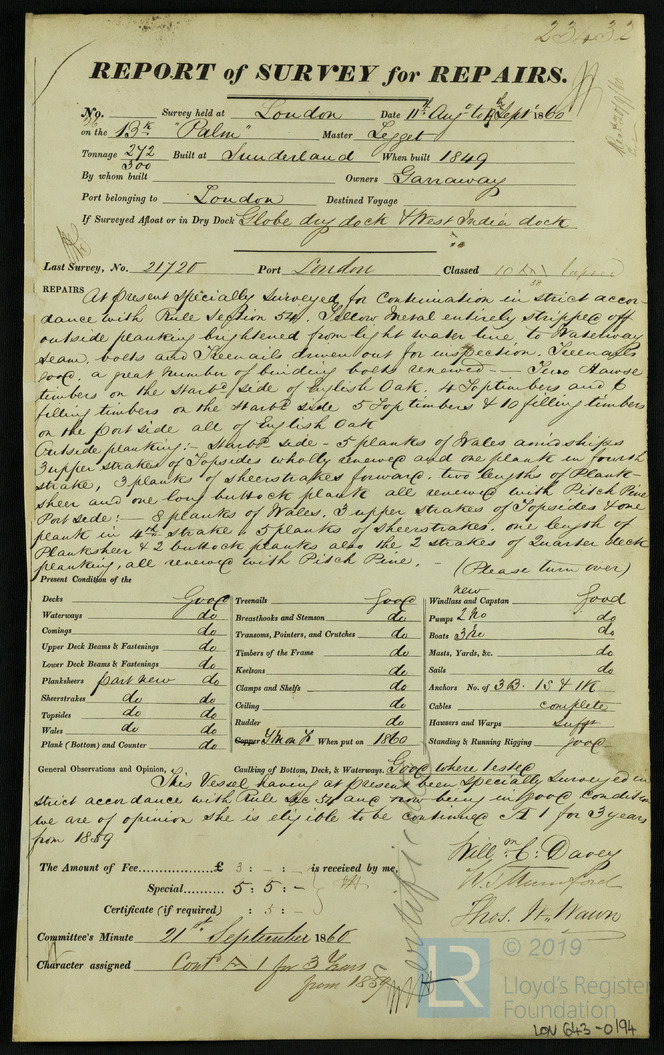 23432
REPORT of SURVEY for REPAIRS.
No. 26 Survey held at London Date 11th Augt to Septr 1860
on the Bk "Palm" Master Legget
Tonnage 272 Built at Sunderland When built 1849
300
By whom built Owners Garraway
Port belonging to London Destined Voyage
If Surveyed Afloat or in Dry Dock Globe dry dock & West India dock
Last Survey, No. 21720 Port London Classed 10 lapsed
58
REPAIRS At present Specially Surveyed for Continuation in strict accor-
dance with Rule Section 54. Yellow Metal entirely stripped off
outside planking brightened from light water line to Waterway
Seam, bolts and Treenails driven out for inspection, Treenails
good, a great number of binding bolts renewed — Two Hawse
timbers on the Starbd side of English Oak. 4 Toptimbers and 6
filling timbers on the Starbd side 5 Toptimbers & 10 filling timbers
on the Port side all of English Oak
Outside planking:- Starbd side - 5 planks of Wales amidships
3 upper strakes of Topsides wholly renewed and one plank in fourth
strake, 3 planks of sheerstrakes forward, two lengths of Plank-
sheer and one long buttock plank all renewed with Pitch Pine
Port side:- 8 planks of Wales, 3 upper strakes of Topsides & one
plank in 4th strake, 5 planks of sheerstrakes, one length of
Planksheer & 2 buttock planks also the 2 strakes of Quarter deck
planking, all renewed with Pitch Pine. - (Please turn over)
Present Condition of the
Decks Good
Waterways do
Comings do
Upper Deck Beams & Fastenings do
Lower Deck Beams & Fastenings do
Planksheers part new do
Sheerstrakes do do
Topsides do do
Wales do do
Plank (Bottom) and Counter do
Treenails Good
Breasthooks and Stemson do
Transoms, Pointers, and Crutches do
Timbers of the Frame do
Keelsons do
Clamps and Shelfs do
Ceiling do
Rudder do
Copper YM on F When put on 1860
Windlass and Capstan new Good
Pumps 2 No do
Boats 3 No do
Masts, Yards, &c. do
Sails do
Anchors No. of 3B. 1S & 1K
Cables complete
Hawsers and Warps Sufft
Standing & Running Rigging good
General Observations and Opinion, Caulking of Bottom, Deck, & Waterways. Good where tested
This Vessel having at present been Specially Surveyed in
strict accordance with Rule Sec 54 and now being in good condition
we are of opinion she is eligible to be continued A 1 for 3 years
from 1859
Will m C. Davey
W. Mumford
Thos. W. Wawn
The Amount of Fee £ 3 : - : - is received by me,
Special 5 : 5 : -
Certificate (if required) : 5 : -
Certificate
Committee's Minute 21st September 1860
Character assigned Contd A 1 for 3 Years
from 1859
LR
© 2019
Lloyd's Register
Foundation
LON 643-0194